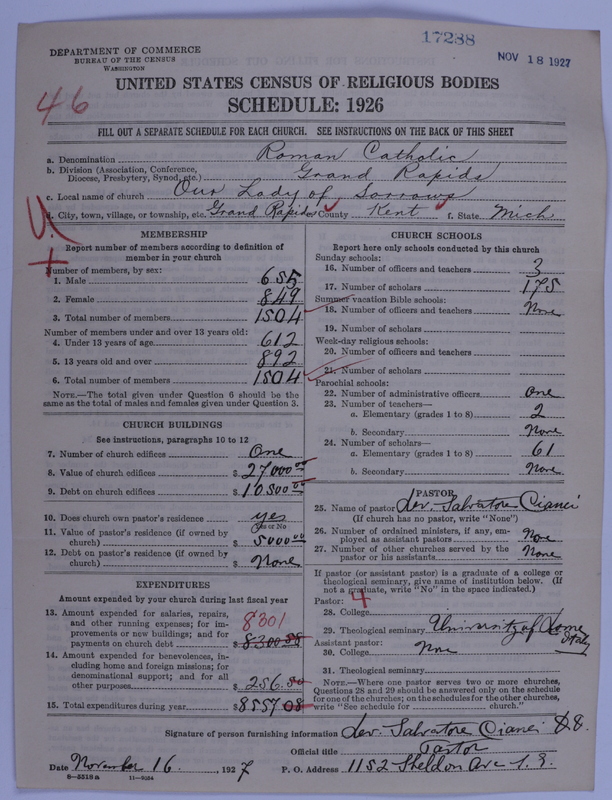 17238
NOV 18 1927
DEPARTMENT OF COMMERCE
BUREAU OF THE CENSUS
WASHINGTON
UNITED STATES CENSUS OF RELIGIOUS BODIES
46
SCHEDULE: 1926
FILL OUT A SEPARATE SCHEDULE FOR EACH CHURCH. SEE INSTRUCTIONS ON THE BACK OF THIS SHEET
a. Denomination Roman Catholic
b. Division (Association, Conference, Diocese, Presbytery, Synod, etc.) Grand Rapids
c. Local name of church Our Lady of Sorrows
d. City, town, village, or township, etc. Grand Rapids e. County Kent f. State Mich
U.
MEMBERSHIP
Report number of members according to definition of member in your church
Number of members, by sex:
1. Male 655
2. Female 849
3. Total number of members 1504
Number of members under and over 13 years old:
4. Under 13 years of age 612
5. 13 years old and over 892
6. Total number of members 1504
NOTE.—The total given under Question 6 should be the same as the total of males and females given under Question 3.
CHURCH BUILDINGS
See instructions, paragraphs 10 to 12
7. Number of church edifices One
8. Value of church edifices $ 27000 00
9. Debt on church edifices $ 10500 00
10. Does church own pastor's residence yes
Yes or No
11. Value of pastor's residence (if owned by church) $ 5000 00
12. Debt on pastor's residence (if owned by church) $ None
EXPENDITURES
Amount expended by your church during last fiscal year
13. Amount expended for salaries, repairs, and other running expenses; for improvements or new buildings; and for payments on church debt 8301
$ 8300 58
14. Amount expended for benevolences, including home and foreign missions; for denominational support; and for all other purposes $ 256.50
15. Total expenditures during year $ 8557 08
CHURCH SCHOOLS
Report here only schools conducted by this church
Sunday schools:
16. Number of officers and teachers 3
17. Number of scholars 175
Summer vacation Bible schools:
18. Number of officers and teachers None
19. Number of scholars
Week-day religious schools:
20. Number of officers and teachers
21. Number of scholars
Parochial schools:
22. Number of administrative officers One
23. Number of teachers—
a. Elementary (grades 1 to 8) 2
b. Secondary None
24. Number of scholars—
a. Elementary (grades 1 to 8) 61
b. Secondary None
PASTOR
25. Name of pastor Rev. Salvatore Cianci
(If church has no pastor, write "None")
26. Number of ordained ministers, if any, employed as assistant pastors None
27. Number of other churches served by the pastor or his assistants None
If pastor (or assistant pastor) is a graduate of a college or theological seminary, give name of institution below. (If not a graduate, write "No" in the space indicated.)
Pastor: 4
28. College
29. Theological seminary University of Rome Italy
Assistant pastor:
30. College None
31. Theological seminary
NOTE.—Where one pastor serves two or more churches, Questions 28 and 29 should be answered only on the schedule for one of the churches; on the schedules for the other churches, write "See schedule for church."
Signature of person furnishing information Rev. Salvatore Cianci
Official title Pastor
Date November 16, 1927 P. O. Address 1152 Sheldon Ave S. E.
8—5518a 11—9064